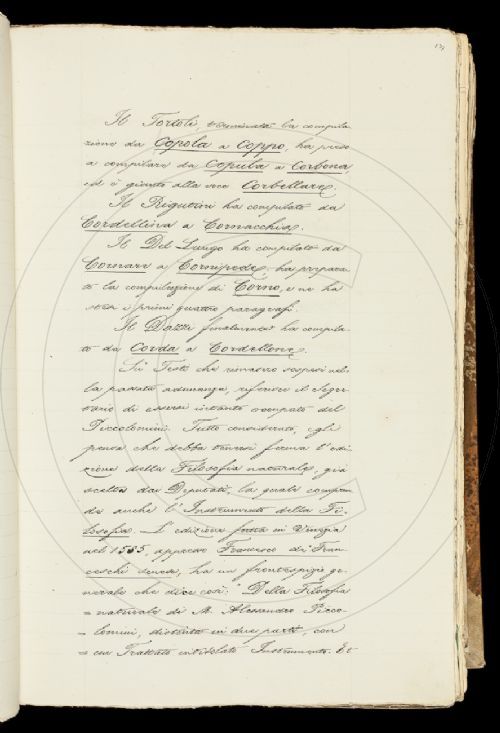 Il Tortoli, terminata la compila-
zione da Copola a Coppo, ha preso
a compilare da Copula a Corbona,
ed è giunto alla voce Corbellare.
Il Rigutini ha compilato da
Cordellina a Cornacchia.
Il Del Lungo ha compilato da
Cornare a Cornipede; ha prepara-
to la compilazione di Corno, e ne ha
stesi i primi quattro paragrafi.
Il Dazzi finalmente ha compila-
to da Corda a Cordellone.
Sui Testi che rimasero sospesi nel-
la passata adunanza, riferisce il Segre-
tario di essersi intanto occupato del
Piccolomini. Tutto considerato, egli
pensa che debba tenersi ferma l'edi-
zione della Filosofia naturale, già
scelta dai Deputati, la quale compren-
de anche l'Instrumento della Fi-
losofia. L'edizione fatta in Venezia
nel 1585, appresso Francesco de' Fran-
ceschi senese, ha un frontespizio ge-
nerale che dice così: "Della Filosofia
= naturale di M. Alessandro Picco-
= lomini, distinta in due parti, con
= un Trattato intitolato Instrumento. Et